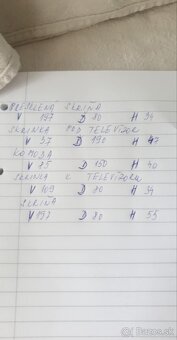 PRESKLENA SKRIŇA
V 197 D 80 H 34
SKRINKA POD TELEVÍZOR
V 37 D 190 H 47
KOMODA
V 75 D 150 H 40
SKRINKA K TELEVÍZORU
V 109 D 80 H 34
SKRIŇA
V 197 D 80 H 55
bazos.sk